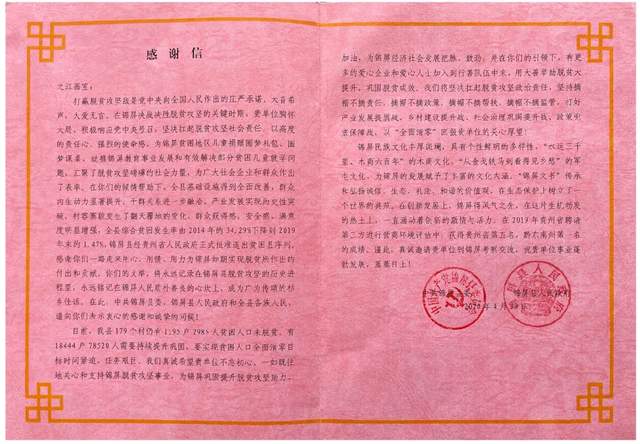 感谢信
之江画室：
打赢脱贫攻坚战是党中央向全国人民作出的庄严承诺，大音希
声，大爱无言。在锦屏决战决胜脱贫攻坚的关键时期，贵单位胸怀
大局，积极响应党中央号召，坚决扛起脱贫攻坚社会责任，以高度
的责任心、强烈的使命感，为锦屏贫困地区儿童捐赠圆梦礼包、圆
梦课桌，故锦屏教育事业发展和有效解决部分贫困儿童就学问
题，汇聚了脱贫攻坚磅礴的社会力量，为广大社会企业和群众作出
了表率。在你们的倾情帮助下，全县基础设施得到全面改善，群众
内生动力显著提升，干群关系进一步融洽，产业发展实现历史性突
破，村容寨貌发生了翻天覆地的变化，群众获得感、安全感、满意
度明显增强，全县综合贫困发生率由2014年的34.29%下降到2019
年末的1.47%，锦屏县经贵州省人民政府正式批准退出贫困县序列，
感谢你们一路走来齐心、用情、用力为锦屏如期实现脱贫摘帽所作出的
付出和贡献。你们的义举，将永远记录在锦屏脱贫攻坚的历史进
程里，永远铭记在锦屏人民质朴善良的心坎上，成为广为传颂的故
乡佳话。在此，中共锦屏县委、锦屏县人民政府和全县各族人民，
谨向你们表示衷心的感谢和诚挚的问候！
目前，我县179个村仍有1195户2985人贫困人口未脱贫，有
18444户78520人需要持续巩固提升，要实现贫困人口全面清零目
标时间紧迫，任务艰巨。我们真诚希望贵单位不忘初心，一如既往
地关心和支持锦屏脱贫攻坚事业，为锦屏巩固提升脱贫攻坚助力、
加油，为锦屏经济社会发展把脉、鼓劲，并在你们的引领下，有更
多的爱心企业和爱心人士加入到行善队伍中来，用大善举助脱贫大
提升、巩固脱贫成效。我们将坚决扛起脱贫攻坚政治责任，坚持摘
帽不摘责任、摘帽不摘政策、摘帽不摘帮扶、摘帽不摘监管，打好
产业发展提固战、乡村建设提升战、社会治理巩固提升战、政策兜
底保障战，以“全面清零”回报贵单位的关心厚望！
锦屏民族文化丰厚斑斓，具有个性鲜明的多样性，“水运三千
里，木商六百年”的木商文化，“从金戈铁马到看得见乡愁”的军
屯文化，为锦屏的发展赋予了丰富的文化大涵。“锦屏文书”传承
和弘扬诚信、生态、礼法、和谐的价值观，在生态保护上树立了一
个世界的典范。在创新发展上，锦屏得风气之先，在这片生机勃发
的热土上，一直涌动着创新的激情与活力。在2019年贵州省聘请
第三方进行营商环境评估中，获得贵州省第五名，黔东南州第一名
的成绩。谨此，真诚邀请贵单位到锦屏考察交流，祝贵单位事业蓬
勃发展，蒸蒸日上！
中共锦屏县委
锦屏县人民政府
2020年4月